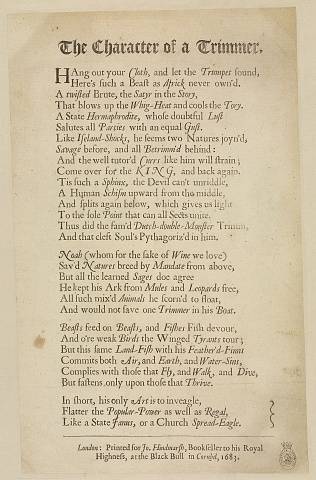 The Character of a Trimmer.
HAng out your Cloth, and let the Trumpet sound,
Here's such a Beast as Africk never own'd.
A twisted Brute, the Satyr in the Story,
That blows up the Whig-Heat and cools the Tory.
A State Hermaphrodite, whose doubtful Lust
Salutes all Parties with an equal Gust.
Like Iseland-Shocks, he seems two Natures joyn'd,
Savage before, and all Betrimm'd behind:
And the well tutor'd Curs like him will strain;
Come over for the KING, and back again.
'Tis such a Sphinx, the Devil can't unriddle,
A Human Schism upward from the middle,
And splits again below, which gives us light
To the sole Point that can all Sects unite.
Thus did the fam'd Dutch-double-Monster Trimm,
And that cleft Soul's Pythagoriz'd in him.
Noah (whom for the sake of Wine we love)
Sav'd Natures breed by Mandate from above,
But all the learned Sages doe agree
He kept his Ark from Mules and Leopards free,
All such mix'd Animals he scorn'd to float,
And would not fave one Trimmer in his Boat.
Beasts feed on Beasts, and Fishes Fish devour,
And o're weak Birds the Winged Tyrants tour;
But this same Land-Fish with his Feather'd-Finns
Commits both Air, and Earth, and Water-Sins,
Complies with those that Fly, and Walk, and Dive,
But fastens only upon those that Thrive.
In short, his only Art is to inveagle,
Flatter the Popular-Power as well as Regal,
Like a State Janus, or a Church Spread-Eagle.
London: Printed for Jo. Hindmarsh, Bookseller to his Royal
Highness, at the Black Bull in Cornhil, 1683.